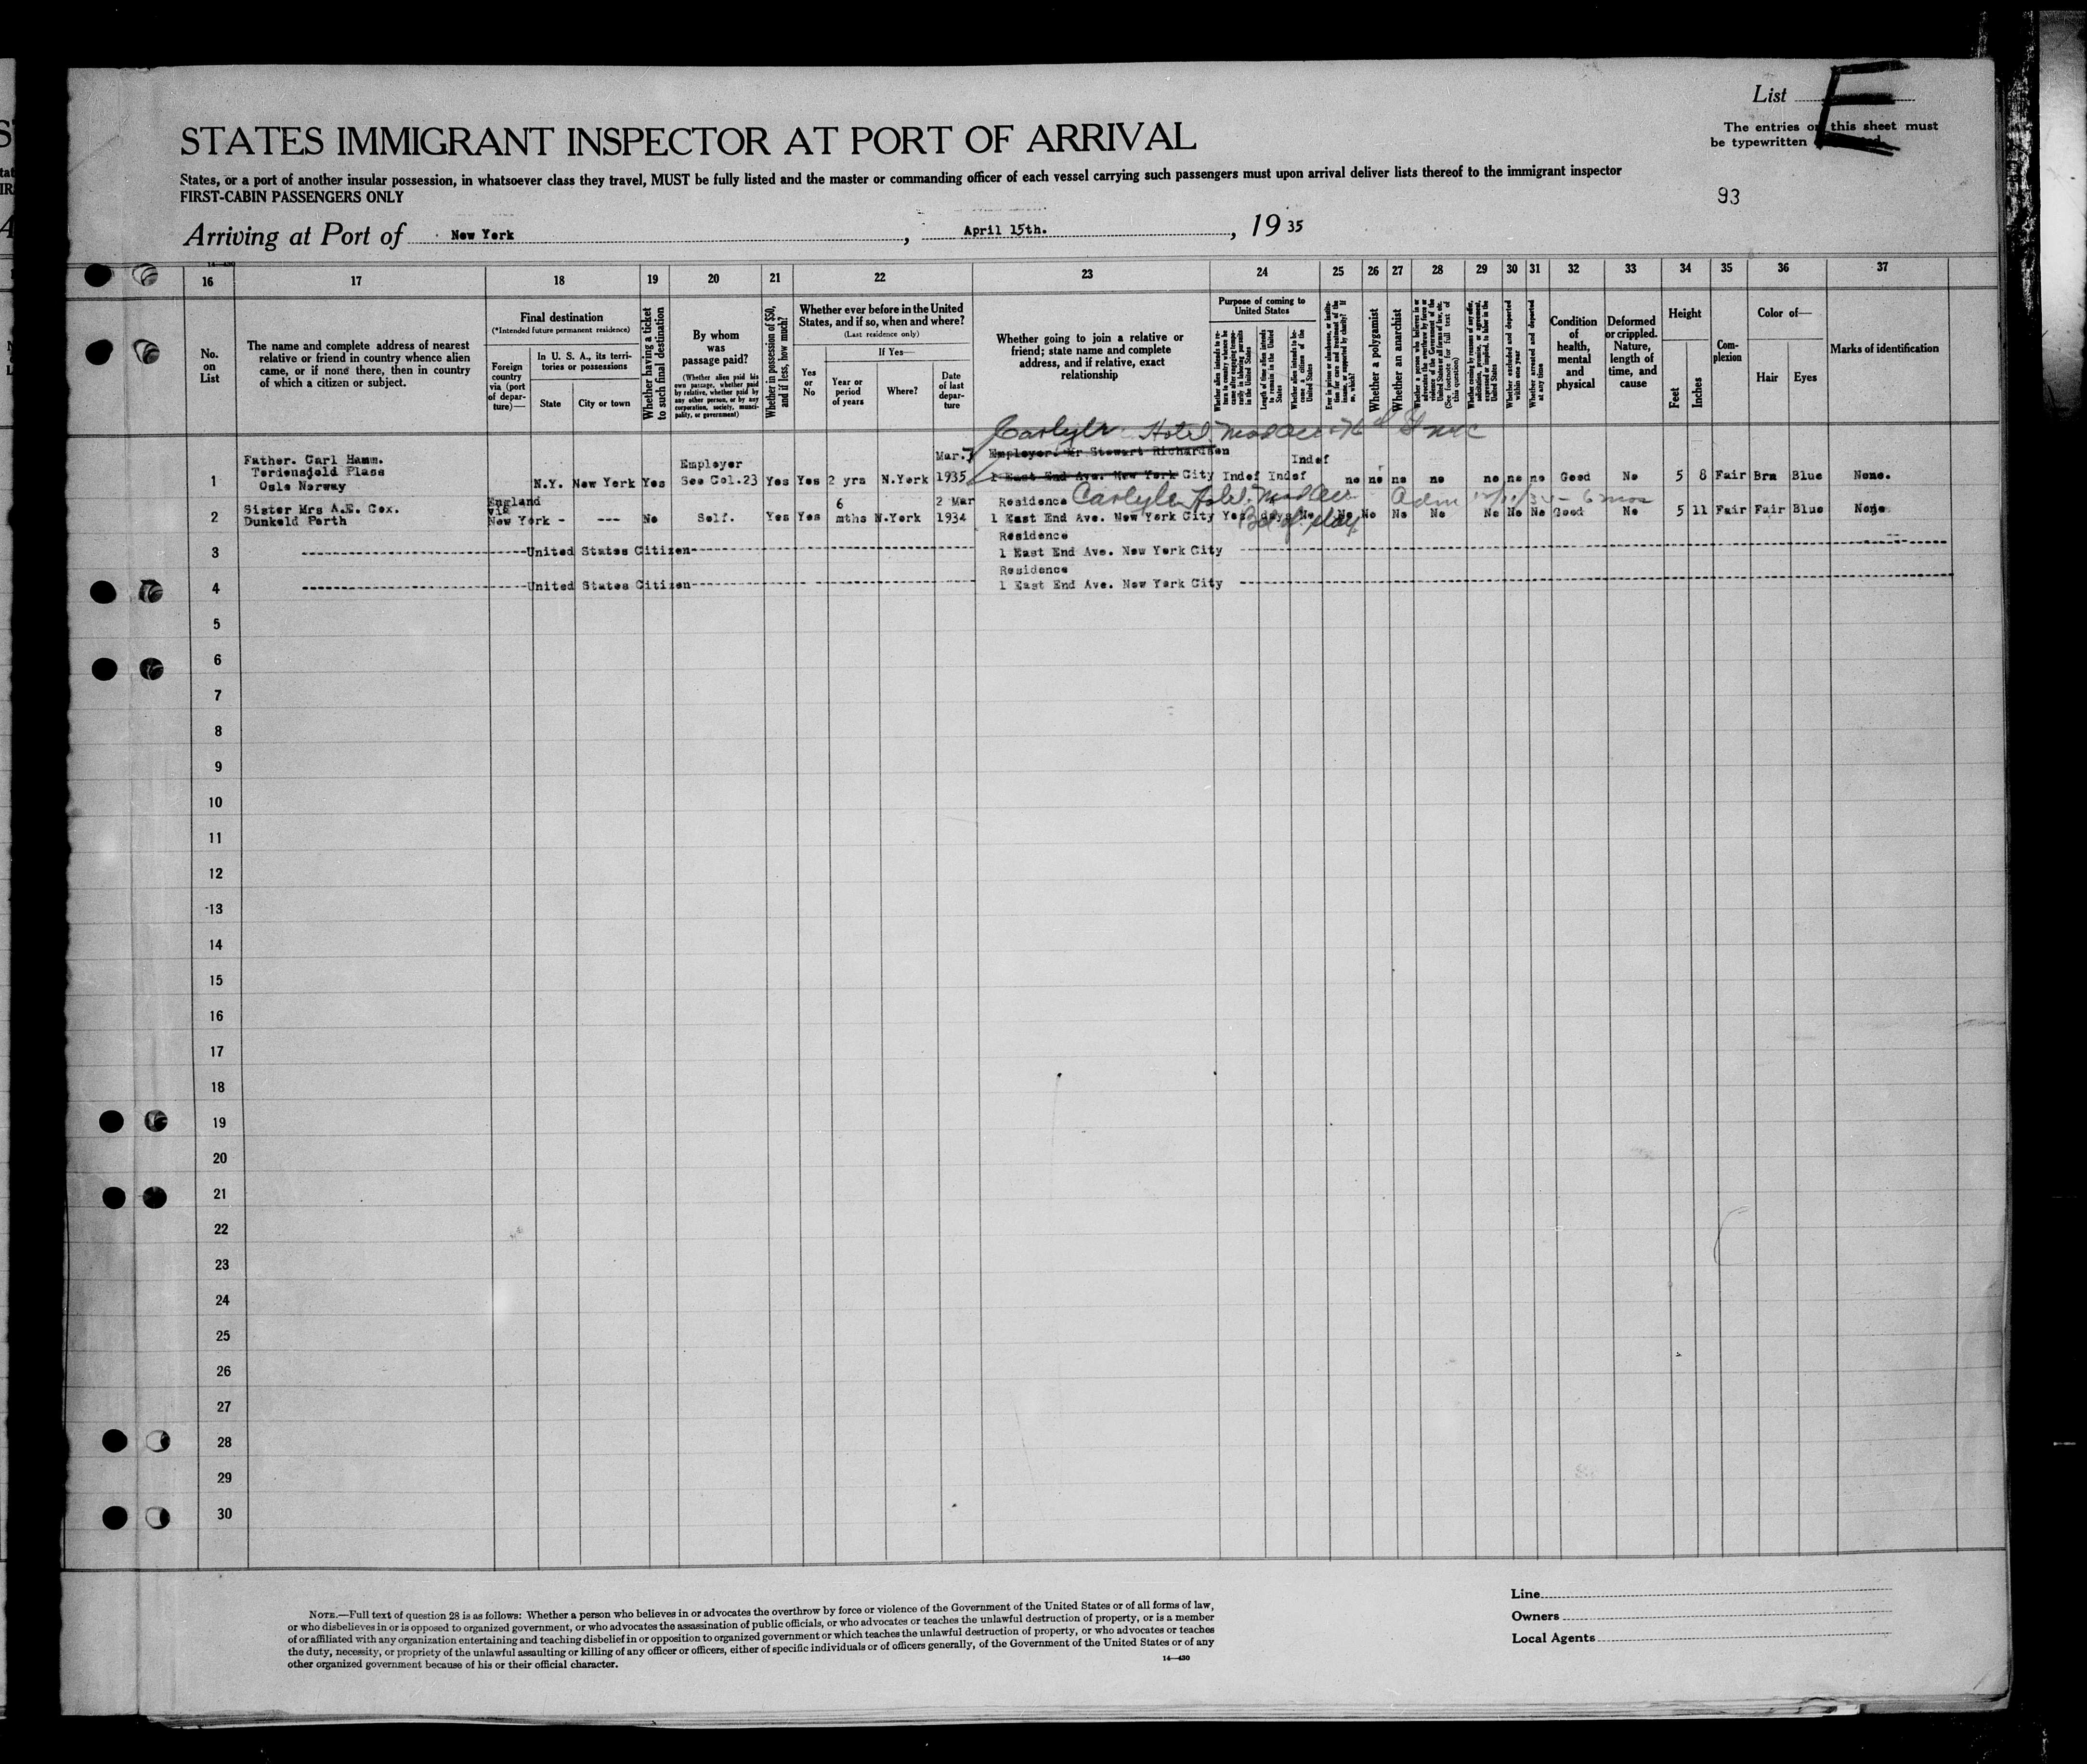 List E
The entries on this sheet must
be typewritten
STATES IMMIGRANT INSPECTOR AT PORT OF ARRIVAL
States, or a port of another insular possession, in whatsoever class they travel, MUST be fully listed and the master or commanding officer of each vessel carrying such passengers must upon arrival deliver lists thereof to the immigrant inspector
FIRST-CABIN PASSENGERS ONLY
93
Arriving at Port of New York, April 15th., 19 35
14—430
16 17 18 19 20 21 22 23 24 25 26 27 28 29 30 31 32 33 34 35 36 37
No. on List
The name and complete address of nearest relative or friend in country whence alien came, or if none there, then in country of which a citizen or subject.
Final destination
(*Intended future permanent residence)
Foreign country via (port of departure)—
In U. S. A., its territories or possessions
State
City or town
Whether having a ticket to such final destination
By whom was passage paid?
(Whether alien paid his own passage, whether paid by relative, whether paid by any other person, or by any corporation, society, municipality, or government)
Whether in possession of $50, and if less, how much?
Whether ever before in the United States, and if so, when and where?
(Last residence only)
Yes or No
If Yes—
Year or period of years
Where?
Date of last departure
Whether going to join a relative or friend; state name and complete address, and if relative, exact relationship
Purpose of coming to United States
Whether alien intends to return to country whence he came after engaging temporarily in laboring pursuits in the United States
Length of time alien intends to remain in the United States
Whether alien intends to become a citizen of the United States
Ever in prison or almshouse, or institution for care and treatment of the insane, or supported by charity? If so, which?
Whether a polygamist
Whether an anarchist
(See footnote for full text of this question)
Whether excluded and deported within one year
Whether arrested and deported at any time
Condition of health, mental and physical
Deformed or crippled. Nature, length of time, and cause
Height
Feet
Inches
Complexion
Color of—
Hair
Eyes
Marks of identification
Carlyle Hotel Mad Ave & 76 St NYC
Father. Carl Hamm. Employer Mar. 7 Employer. Mr Stewart Richardson Indef
Tordensjold Plass
1 Oslo Norway N.Y. New York Yes See Col.23 Yes Yes 2 yrs N.York 1935 1 East End Ave. New York City Indef Indef no no no no no no no Good No 5 8 Fair Brn Blue None.
England via 6 2 Mar Residence Carlyle Hotel. Mad Ave Adm 6 mos
Sister Mrs A.E. Cox.
2 Dunkeld Perth New York - --- No Self. Yes Yes mths N.York 1934 1 East End Ave. New York City Yes days No No No No No No No No Good No 5 11 Fair Fair Blue None.
Bal of stay
Residence
3 United States Citizen 1 East End Ave. New York City
Residence
4 United States Citizen 1 East End Ave. New York City
5
6
7
8
9
10
11
12
13
14
15
16
17
18
19
20
21
22
23
24
25
26
27
28
29
30
Line
Owners
Local Agents
NOTE.—Full text of question 28 is as follows: Whether a person who believes in or advocates the overthrow by force or violence of the Government of the United States or of all forms of law,
or who disbelieves in or is opposed to organized government, or who advocates the assassination of public officials, or who advocates or teaches the unlawful destruction of property, or is a member
of or affiliated with any organization entertaining and teaching disbelief in or opposition to organized government or which teaches the unlawful destruction of property, or who advocates or teaches
the duty, necessity, or propriety of the unlawful assaulting or killing of any officer or officers, either of specific individuals or of officers generally, of the Government of the United States or of any
other organized government because of his or their official character.
14—430